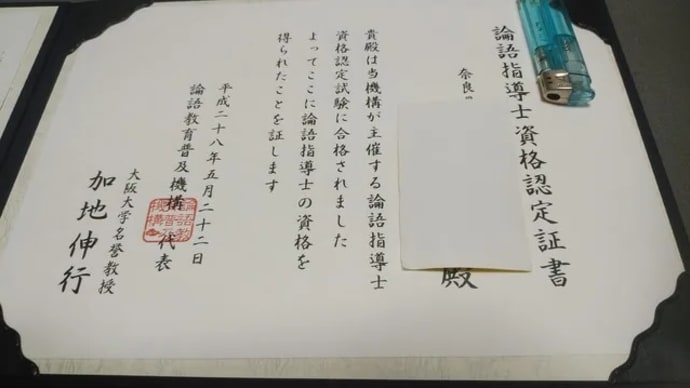 論語指導士資格認定証書
奈良
殿
貴殿は当機構が主催する論語指導士
資格認定試験に合格されました
よってここに論語指導士の資格を
得られたことを証します
平成二十八年五月二十二日
論語教育普及機構 代表
大阪大学名誉教授
加地伸行